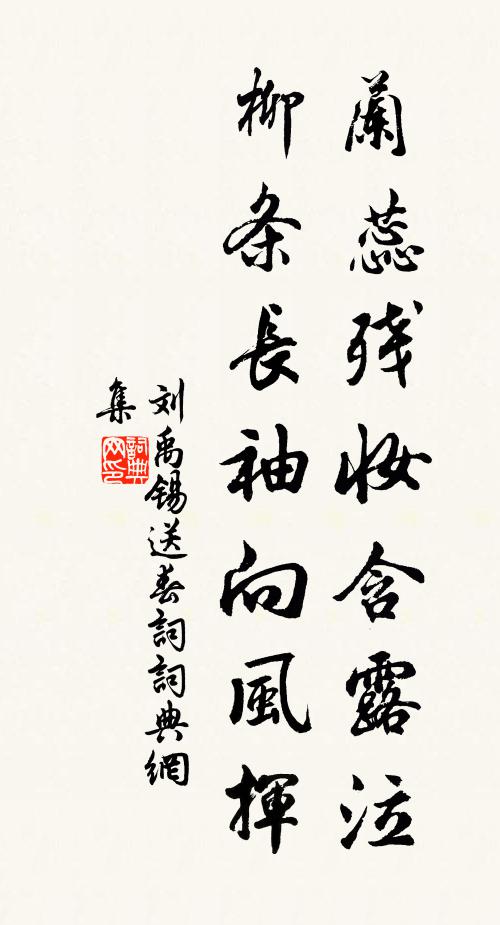 蘭蕊残妝含露泣
柳条長袖向風揮
刘禹锡送春詞詞典網
集
詞典
网印